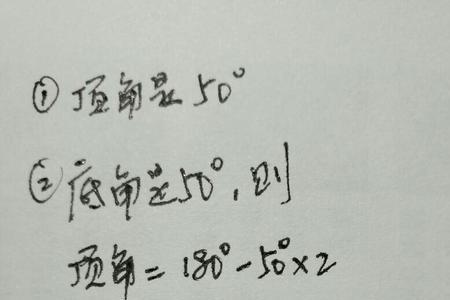 ① 顶角是50°
② 底角是50°,则
顶角=180°-50°×2